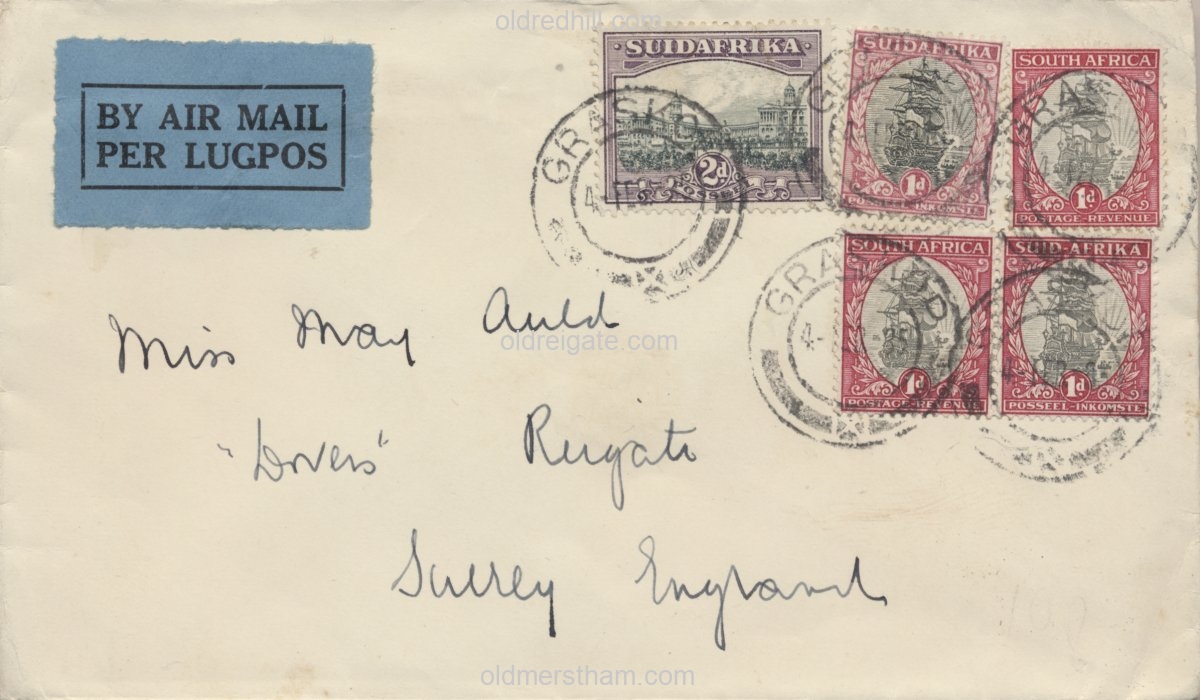 oldredhill.com
BY AIR MAIL
PER LUGPOS
SUIDAFRIKA
2d
POSSEEL
SUIDAFRIKA
1d
POSSEEL-INKOMSTE
SOUTH AFRICA
1d
POSTAGE-REVENUE
SOUTH AFRICA
1d
POSTAGE-REVENUE
SUID-AFRIKA
1d
POSSEEL-INKOMSTE
GRASKOP
4
GRA
4-
Miss May Auld
oldreigate.com
"Dovers" Reigate
Surrey England
oldmerstham.com